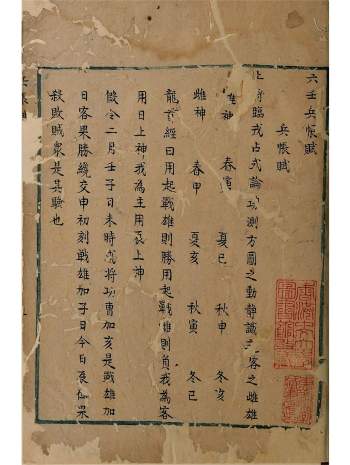 六壬兵帳賦
兵帳賦
臨戎占式論攻測方圓之動靜識客之雌雄
雄神 春寅 夏巳 秋申 冬亥
雌神 春申 夏亥 秋寅 冬巳
龍經曰用起戰雄則勝用起戰雌則負我為客
用日上神我為主用辰上神
假令二月壬子日未時戌將功曹加亥是戰雄加
日客果勝纔交申初刻戰雄加子日今日辰仙果
殺敗賊眾是其驗也